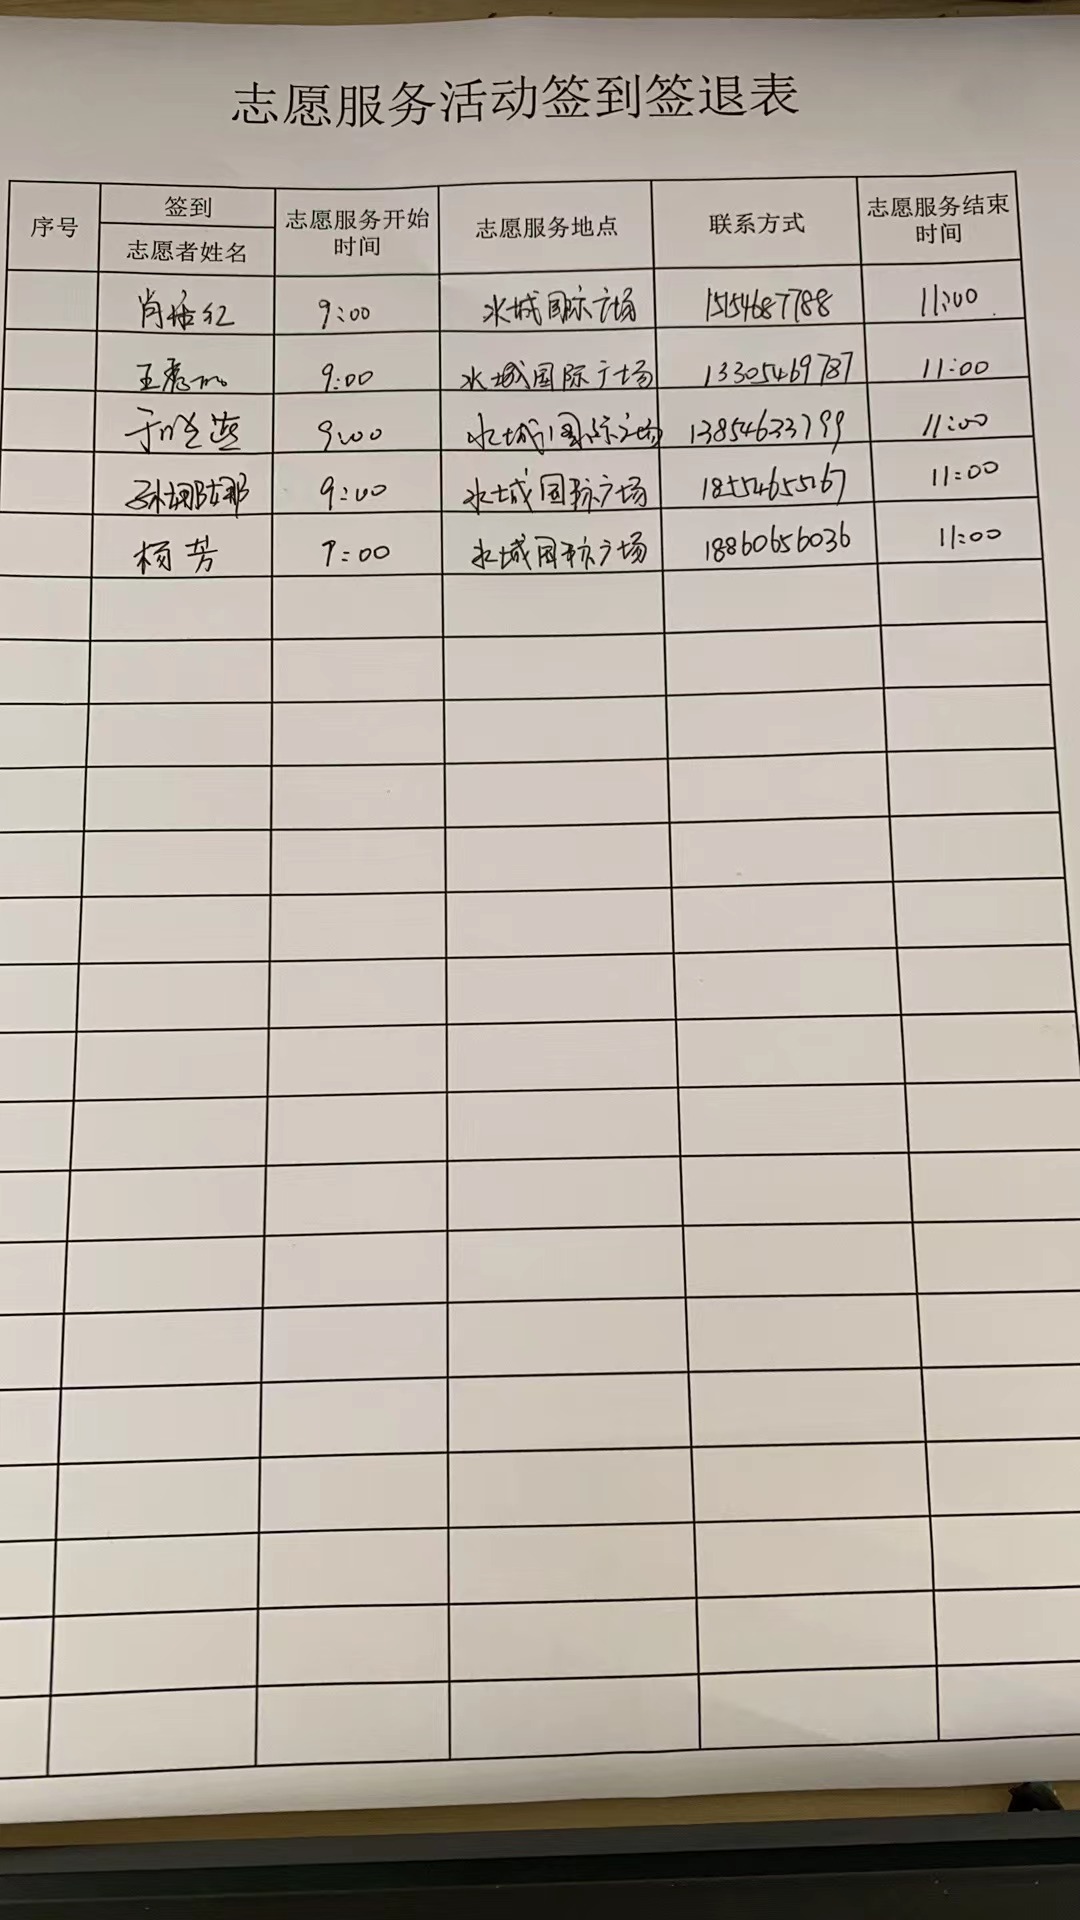 志愿服务活动签到签退表
序号 签到 志愿者姓名 志愿服务开始时间 志愿服务地点 联系方式 志愿服务结束时间
9:00 水城国际广场 15154687788 11:00
9:00 水城国际广场 13305469787 11:00
9:00 水城国际广场 13854633799 11:00
孙娜娜 9:00 水城国际广场 18554655267 11:00
杨芳 9:00 水城国际广场 18860656036 11:00